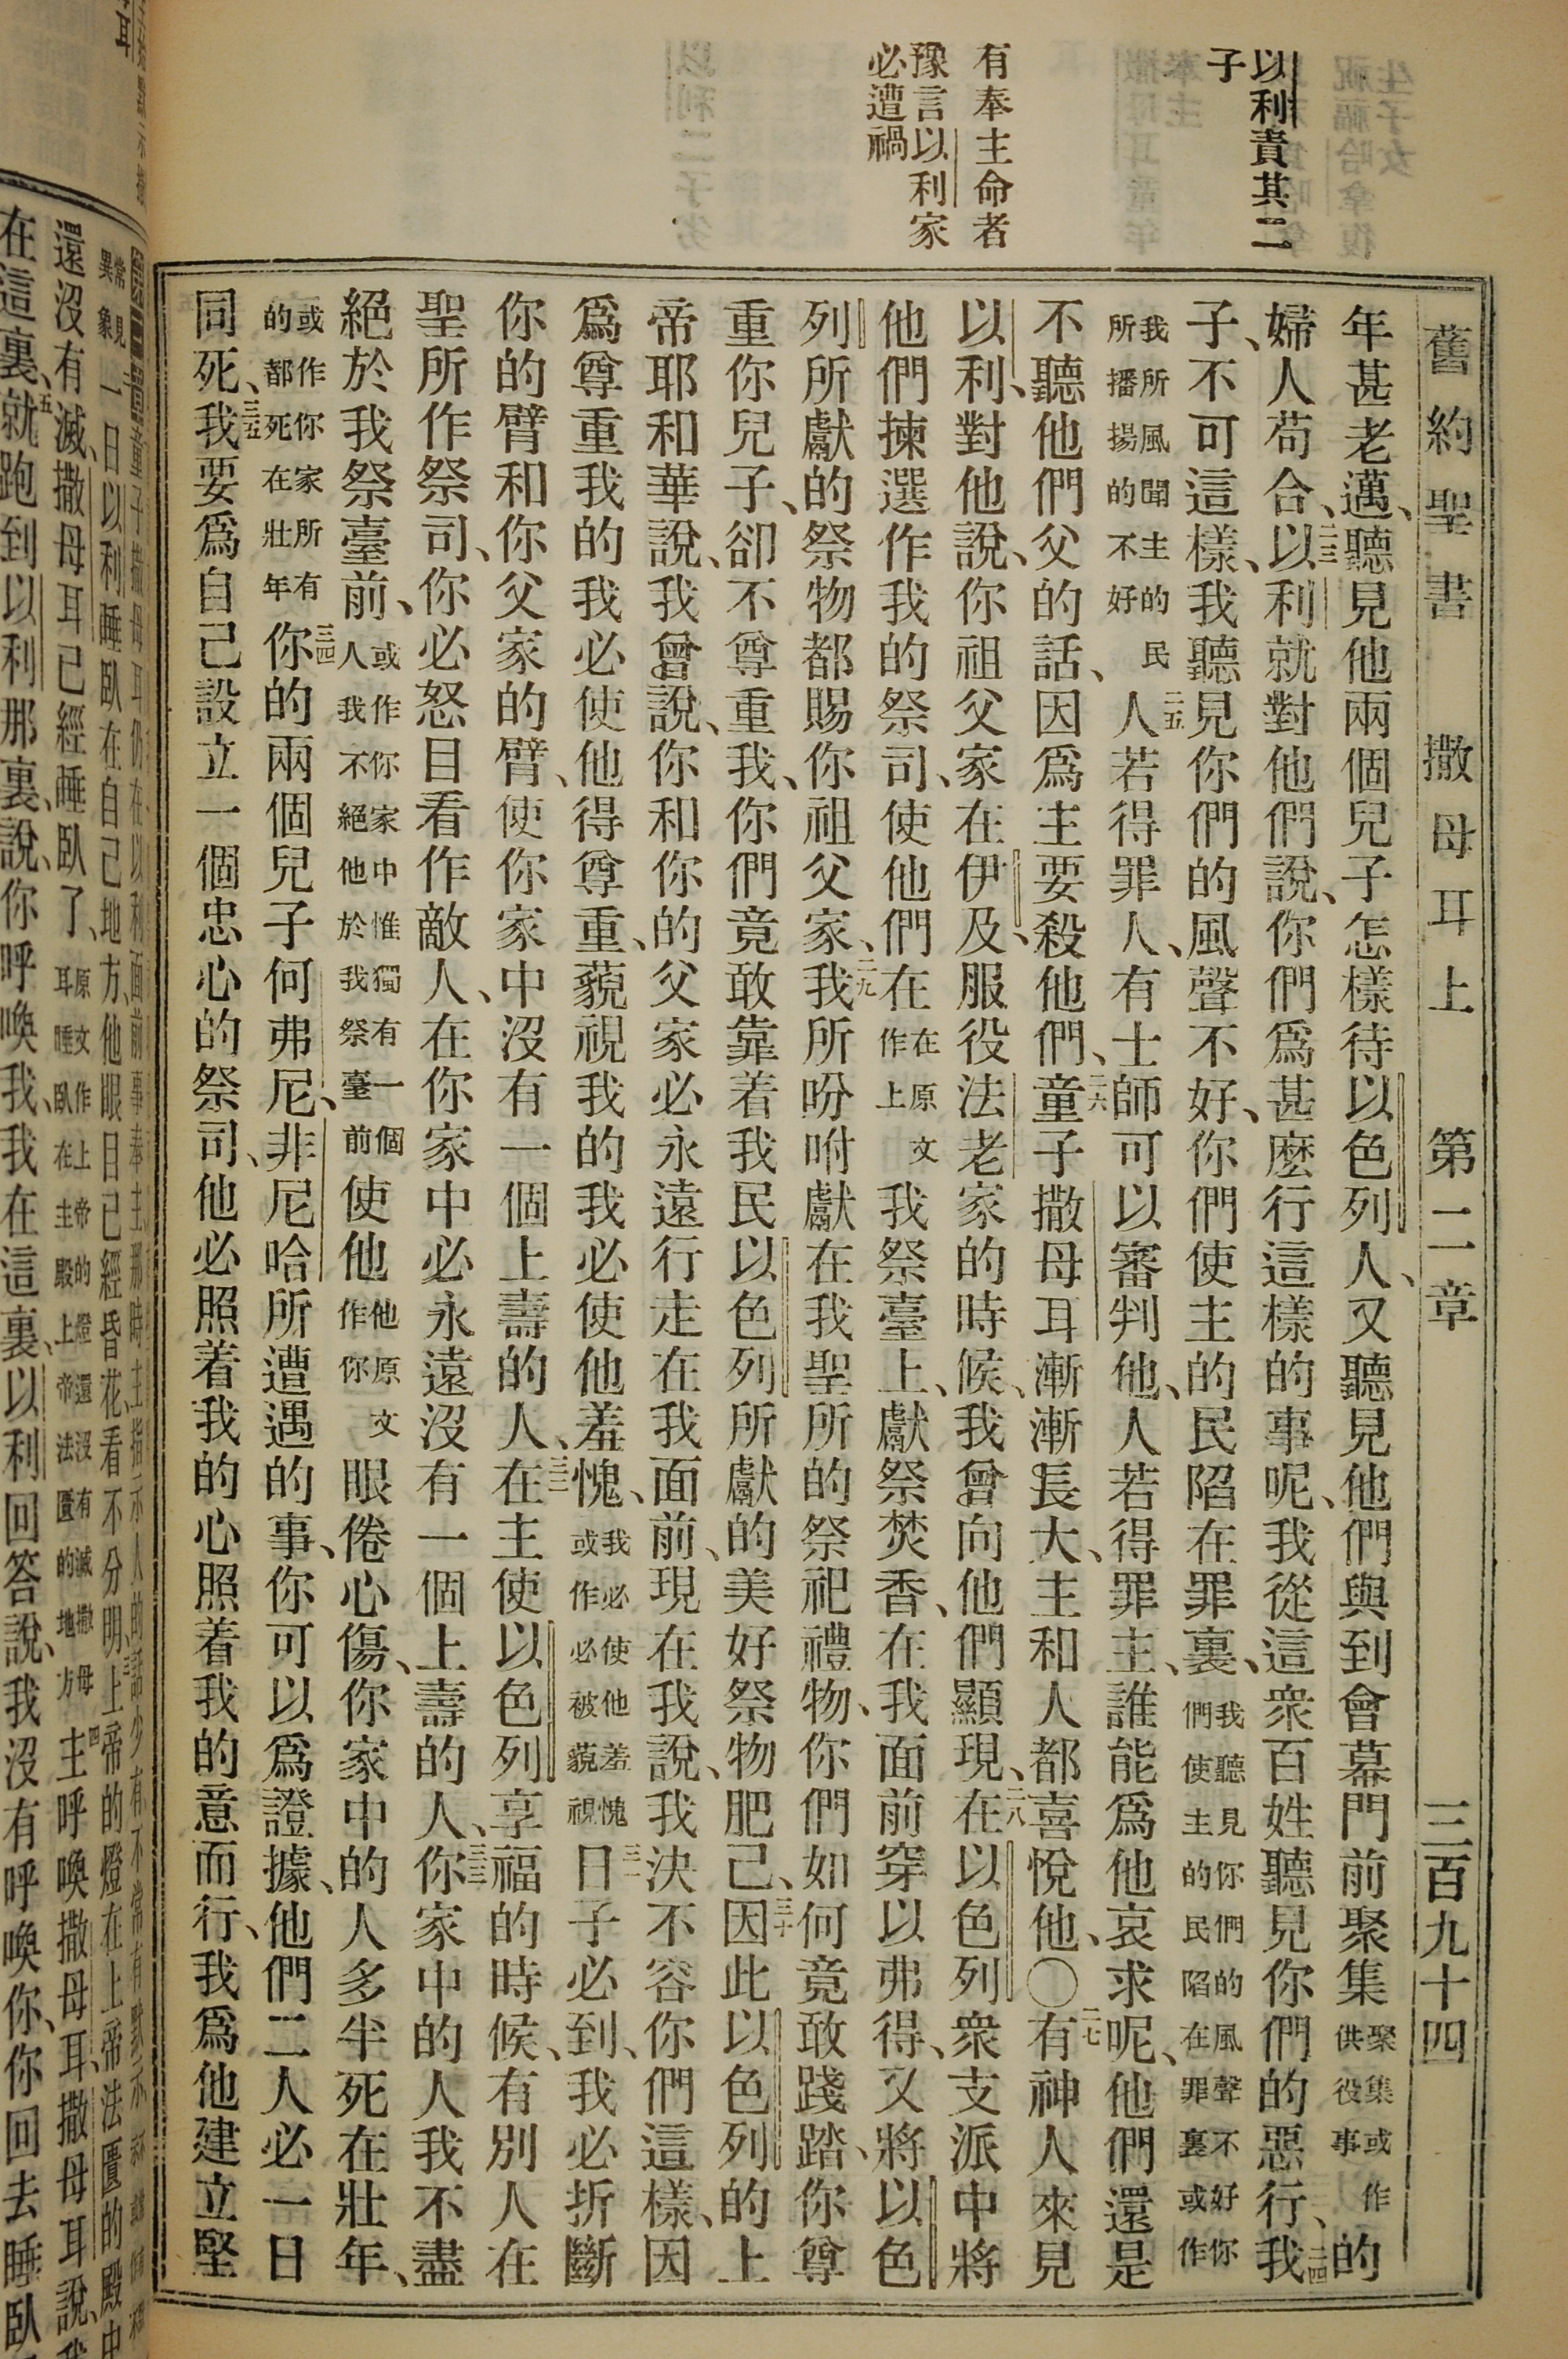 舊約聖書 撒母耳上 第二章 三百九十四
以利責其二
子
有奉主命者
豫言以利家
必遭禍
年甚老邁、聽見他兩個兒子怎樣待以色列人、又聽見他們與到會幕門前聚集聚集或作供役事的
婦人苟合、二三以利就對他們說、你們爲甚麽行這樣的事呢、我從這衆百姓聽見你們的惡行、二四我
子、不可這樣、我聽見你們的風聲不好、你們使主的民陷在罪裏、我聽見你們的風聲不好你們使主的民陷在罪裏或作
我所風聞主的民所播揚的不好二五人若得罪人、有士師可以審判他、人若得罪主、誰能爲他哀求呢、他們還是
不聽他們父的話、因爲主要殺他們、二六童子撒母耳漸漸長大、主和人都喜悅他、〇二七有神人來見
以利、對他說、你祖父家在伊及、服役法老家的時候、我曾向他們顯現、二八在以色列衆支派中將
他們揀選作我的祭司、使他們在在原文作上我祭臺上、獻祭焚香、在我面前穿以弗得、又將以色
列所獻的祭物都賜你祖父家、二九我所吩咐獻在我聖所的祭祀禮物、你們如何竟敢踐踏、你尊
重你兒子、卻不尊重我、你們竟敢靠着我民以色列所獻的美好祭物肥己、三十因此以色列的上
帝耶和華說、我曾說、你和你的父家必永遠行走在我面前、現在我說、我決不容你們這樣、因
爲尊重我的我必使他得尊重、藐視我的我必使他羞愧、我必使他羞愧或作必被藐視三一日子必到、我必折斷
你的臂和你父家的臂、使你家中沒有一個上壽的人、三二在主使以色列享福的時候、有別人在
聖所作祭司、你必怒目看作敵人、在你家中必永遠沒有一個上壽的人、三三你家中的人我不盡
絕於我祭臺前、或作你家中惟獨有一個人我不絕他於我祭臺前使他他原文作你眼倦心傷、你家中的人多半死在壯年、
或作你家所有的都死在壯年三四你的兩個兒子何弗尼、非尼哈所遭遇的事、你可以爲證據、他們二人必一日
同死、三五我要爲自己設立一個忠心的祭司、他必照着我的心照着我的意而行、我爲他建立堅
一日以利睡臥在自己地方、他眼目已經昏花、看不分明、三上帝的燈在上帝法匱的殿中
還沒有滅、撒母耳已經睡臥了、原文作上帝的燈還沒有滅撒母耳睡臥在主殿上帝法匱的地方四主呼喚撒母耳、撒母耳說、
在這裏、五就跑到以利那裏、說、你呼喚我、我在這裏、以利回答說、我沒有呼喚你、你回去睡臥